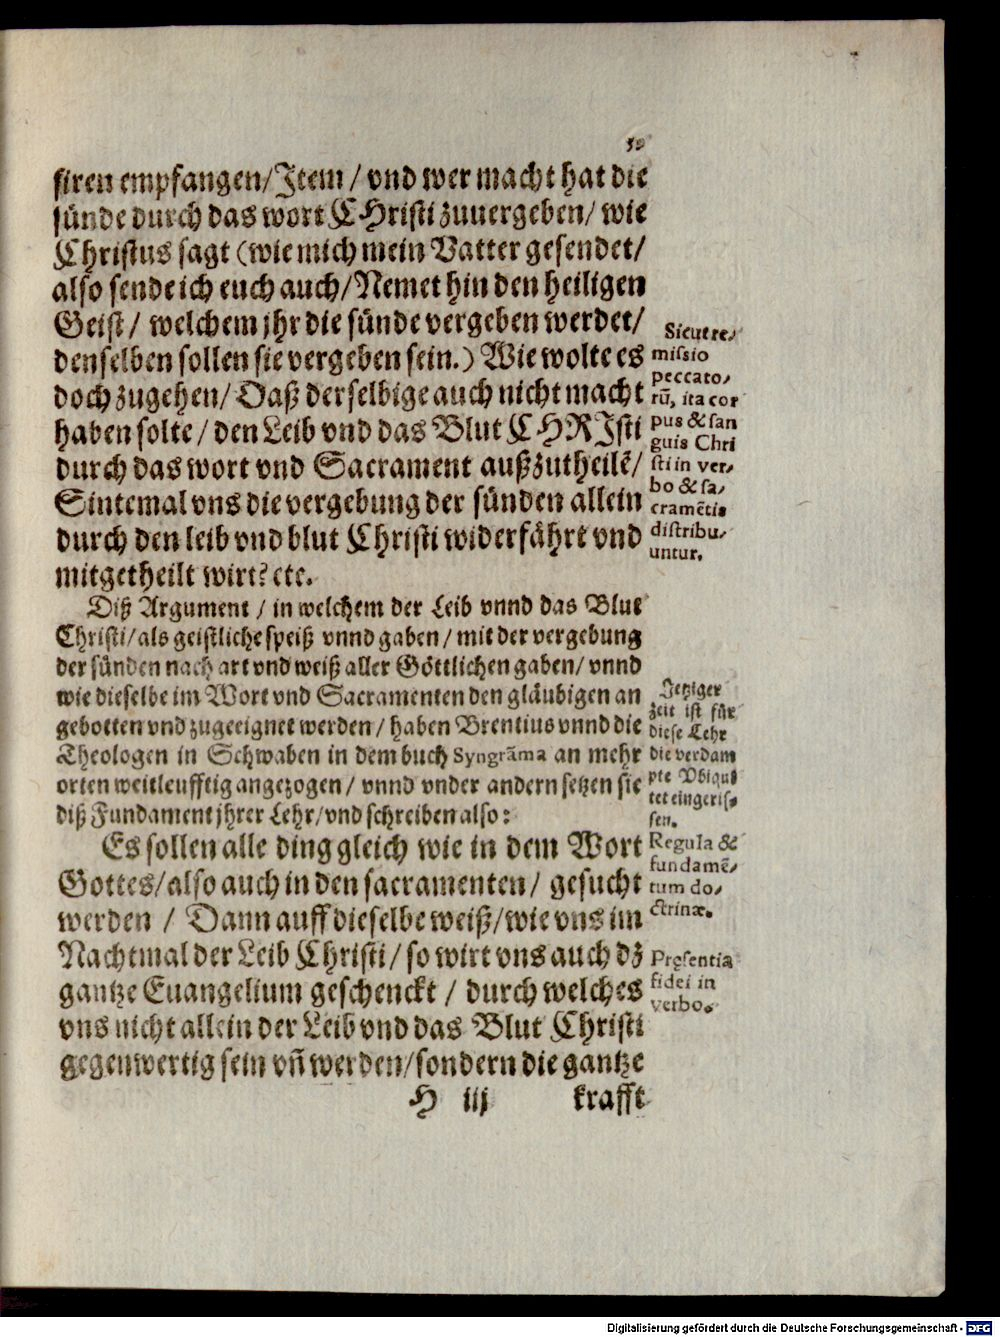 59
siren empfangen/Item/ vnd wer macht hat die
sünde durch das wort CHristi zuuergeben/ wie
Christus sagt (wie mich mein Vatter gesendet/
also sende ich euch auch/Nemet hin den heiligen
Geist/ welchem jhr die sünde vergeben werdet/
denselben sollen sie vergeben sein.) Wie wolte es
doch zugehen/ Daß derselbige auch nicht macht
haben solte/ den Leib vnd das Blut CHRIsti
durch das wort vnd Sacrament außzutheilẽ/
Sintemal vns die vergebung der sünden allein
durch den leib vnd blut Christi widerfährt vnd
mitgetheilt wirt? etc.
Sicut re/
missio
peccato/
rũ, ita cor
pus & san
guis Chri
sti in ver/
bo & sa/
cramẽtis
distribu/
untur.
Diß Argument / in welchem der Leib vnnd das Blut
Christi/ als geistliche speiß vnnd gaben/ mit der vergebung
der sünden nach art vnd weiß aller Göttlichen gaben/ vnnd
wie dieselbe im Wort vnd Sacramenten den gläubigen an
gebotten vnd zugeeignet werden/ haben Brentius vnnd die
Theologen in Schwaben in dem buch Syngrãma an mehr
orten weitleufftig angezogen/ vnnd vnder andern setzen sie
diß Fundament jhrer Lehr/vnd schreiben also:
Jetziger
zeit ist für
diese Lehr
die verdam
pte Vbiqui
tet eingeris/
sen.
Es sollen alle ding gleich wie in dem Wort
Gottes/also auch in den sacramenten/ gesucht
werden / Dann auff dieselbe weiß/wie vns im
Nachtmal der Leib Christi/ so wirt vns auch dz
gantze Euangelium geschenckt / durch welches
vns nicht allein der Leib vnd das Blut Christi
gegenwertig sein vñ werden/sondern die gantze
Regula &
fundamẽ/
tum do/
ctrinæ.
Pręsentia
fidei in
verbo.
H iij krafft
Digitalisierung gefördert durch die Deutsche Forschungsgemeinschaft - DFG